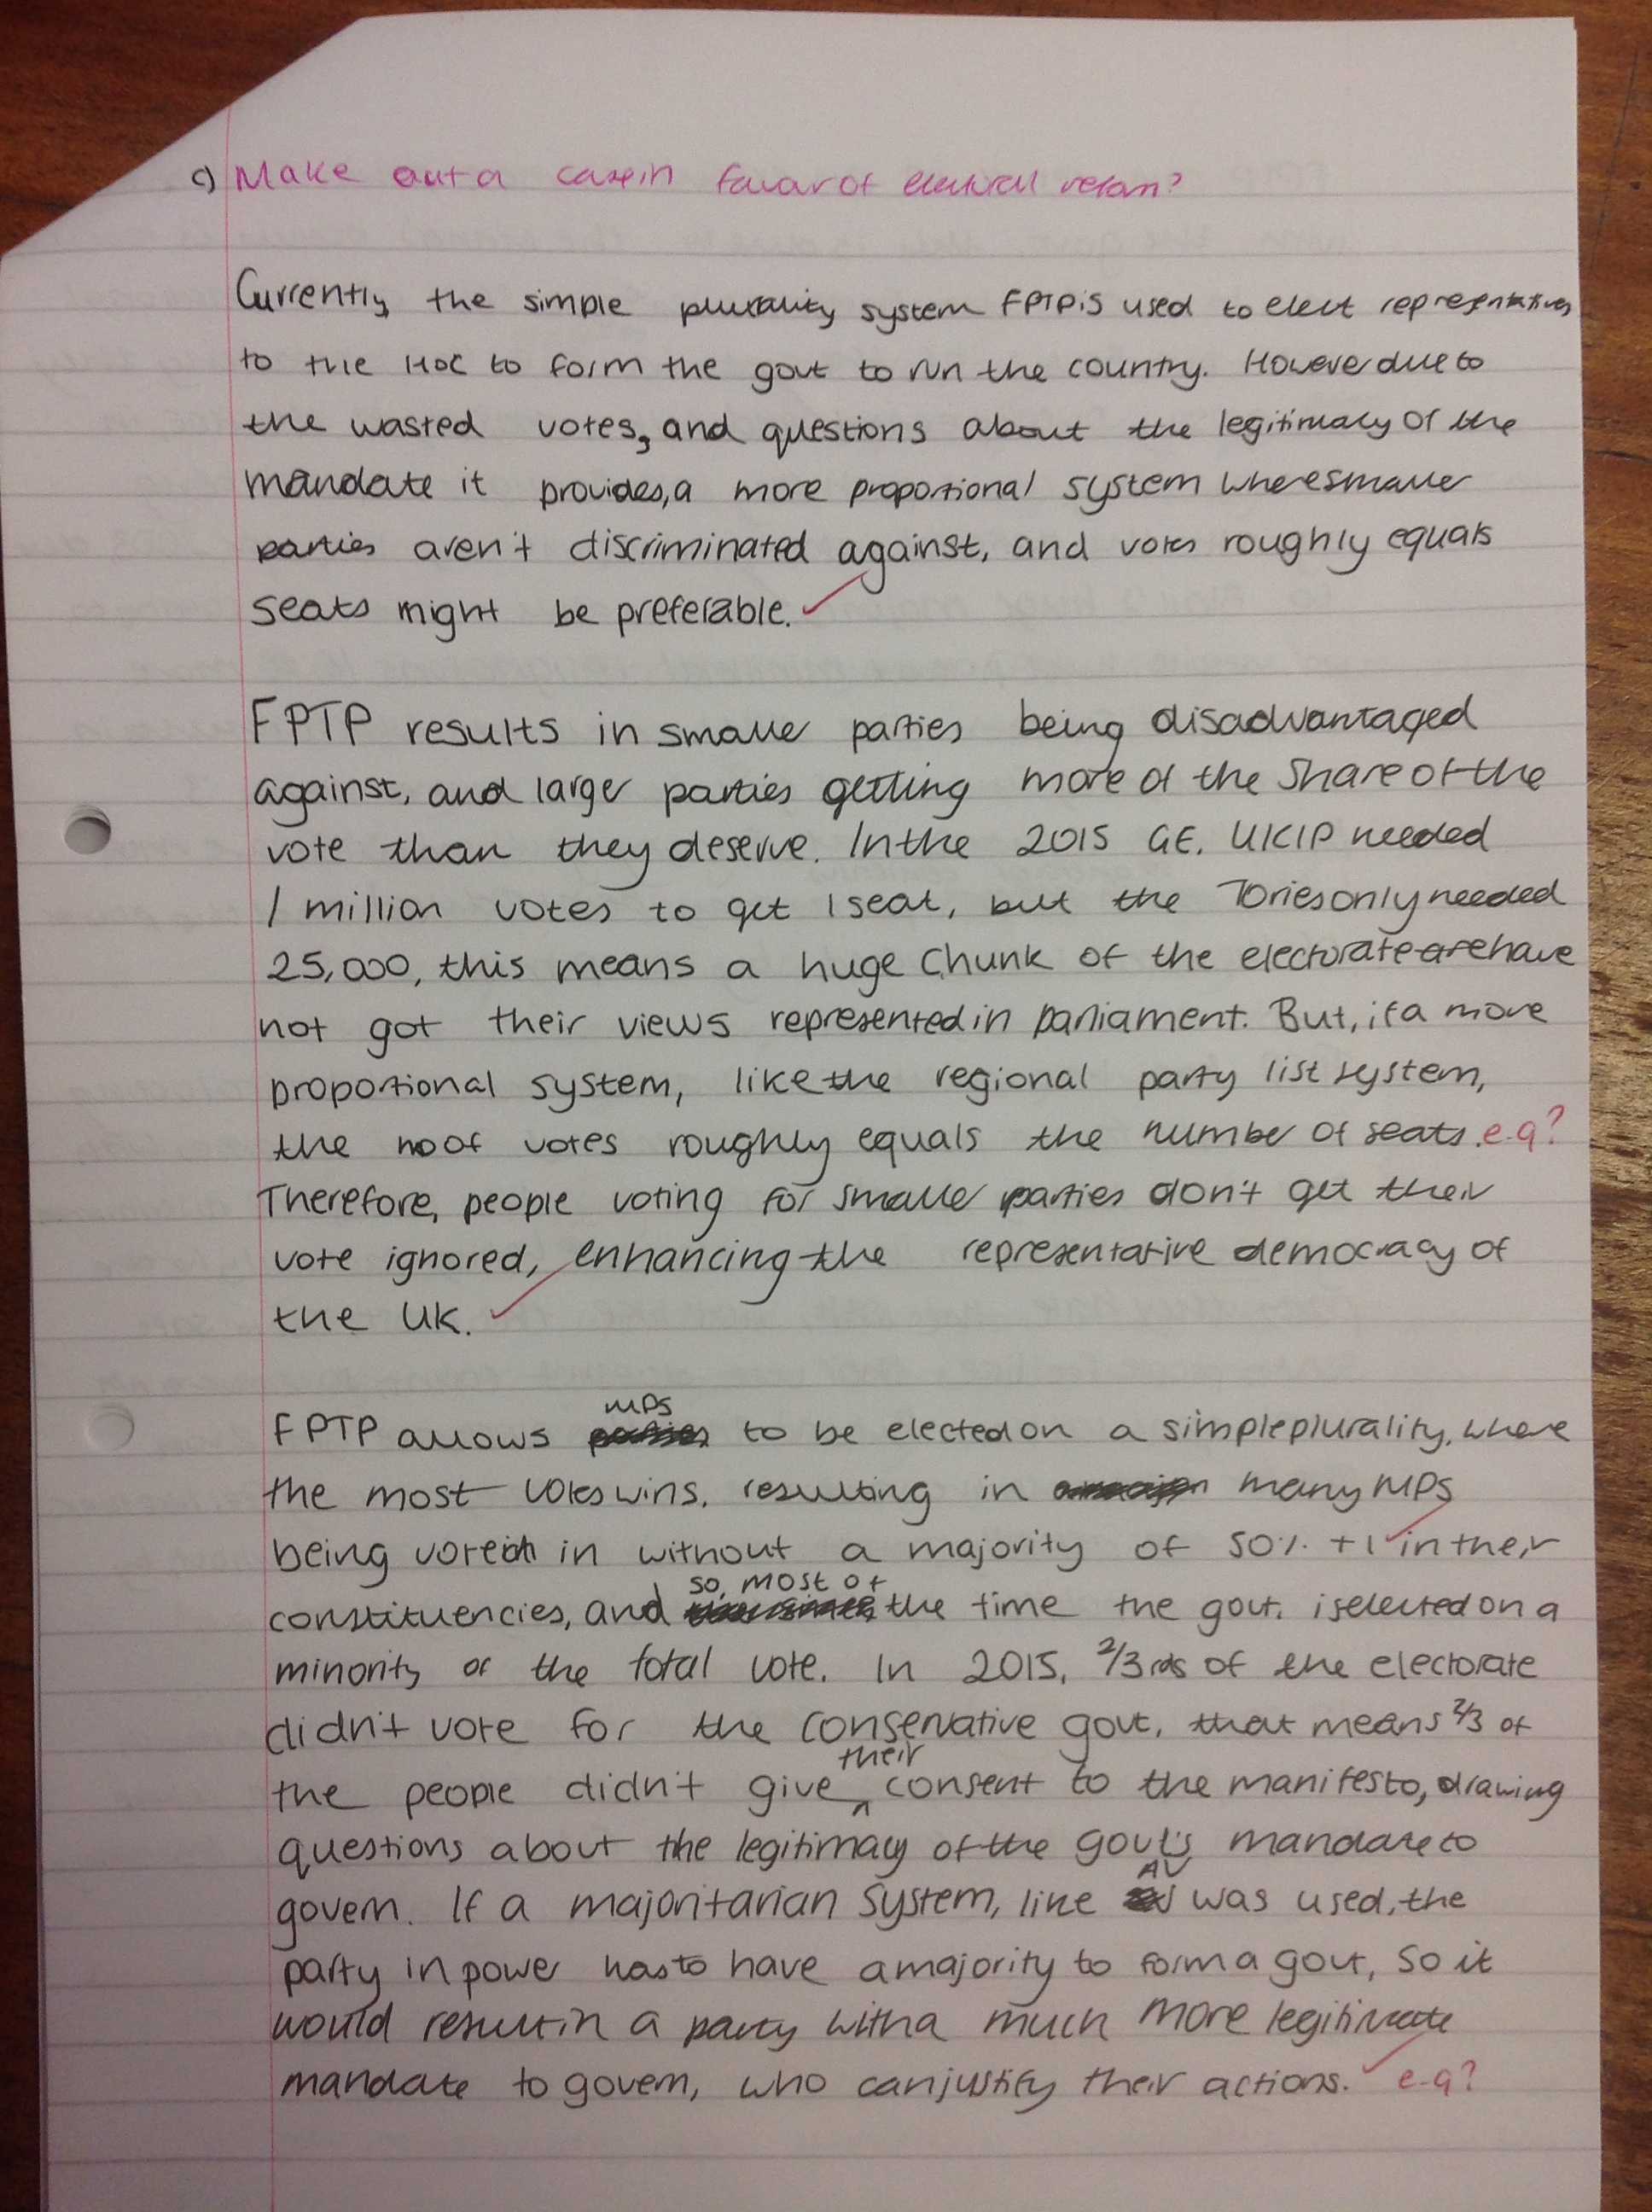 c) Make out a case in favour of electoral reform?
Currently, the simple plurality system FPTP is used to elect representatives
to the HOC to form the govt to run the country. However due to
the wasted votes, and questions about the legitimacy of the
mandate it provides, a more proportional system where smaller
parties aren't discriminated against, and votes roughly equals
seats might be preferable. ✓
FPTP results in smaller parties being disadvantaged
against, and larger parties getting more of the share of the
vote than they deserve. In the 2015 GE, UKIP needed
1 million votes to get 1 seat, but the Tories only needed
25,000, this means a huge chunk of the electorate are have
not got their views represented in parliament. But, if a more
proportional system, like the regional party list system,
the no of votes roughly equals the number of seats. e.g?
Therefore, people voting for smaller parties don't get their
vote ignored, enhancing the representative democracy of
the UK. ✓
FPTP allows MPs to be elected on a simple plurality, where
the most votes wins, resulting in many MPs
being voted in without a majority of 50% +1 ✓ in their
constituencies, and so, most of the time the govt. is elected on a
minority of the total vote. In 2015, 2/3rds of the electorate
didn't vote for the conservative govt, that means 2/3 of
the people didn't give their consent to the manifesto, drawing
questions about the legitimacy of the govt's mandate to
govern. If a majoritarian system, like AV was used, the
party in power has to have a majority to form a govt, so it
would result in a party with a much more legitimate
mandate to govern, who can justify their actions. ✓ e.g?